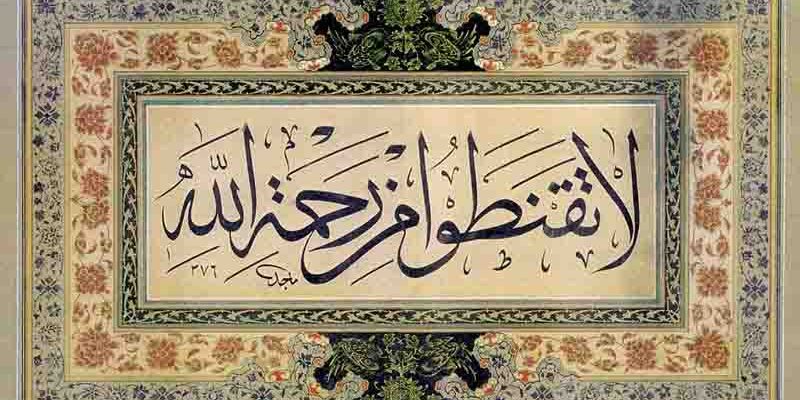 لا تقنطوا من رحمة الله
ماجد ٢٧٦